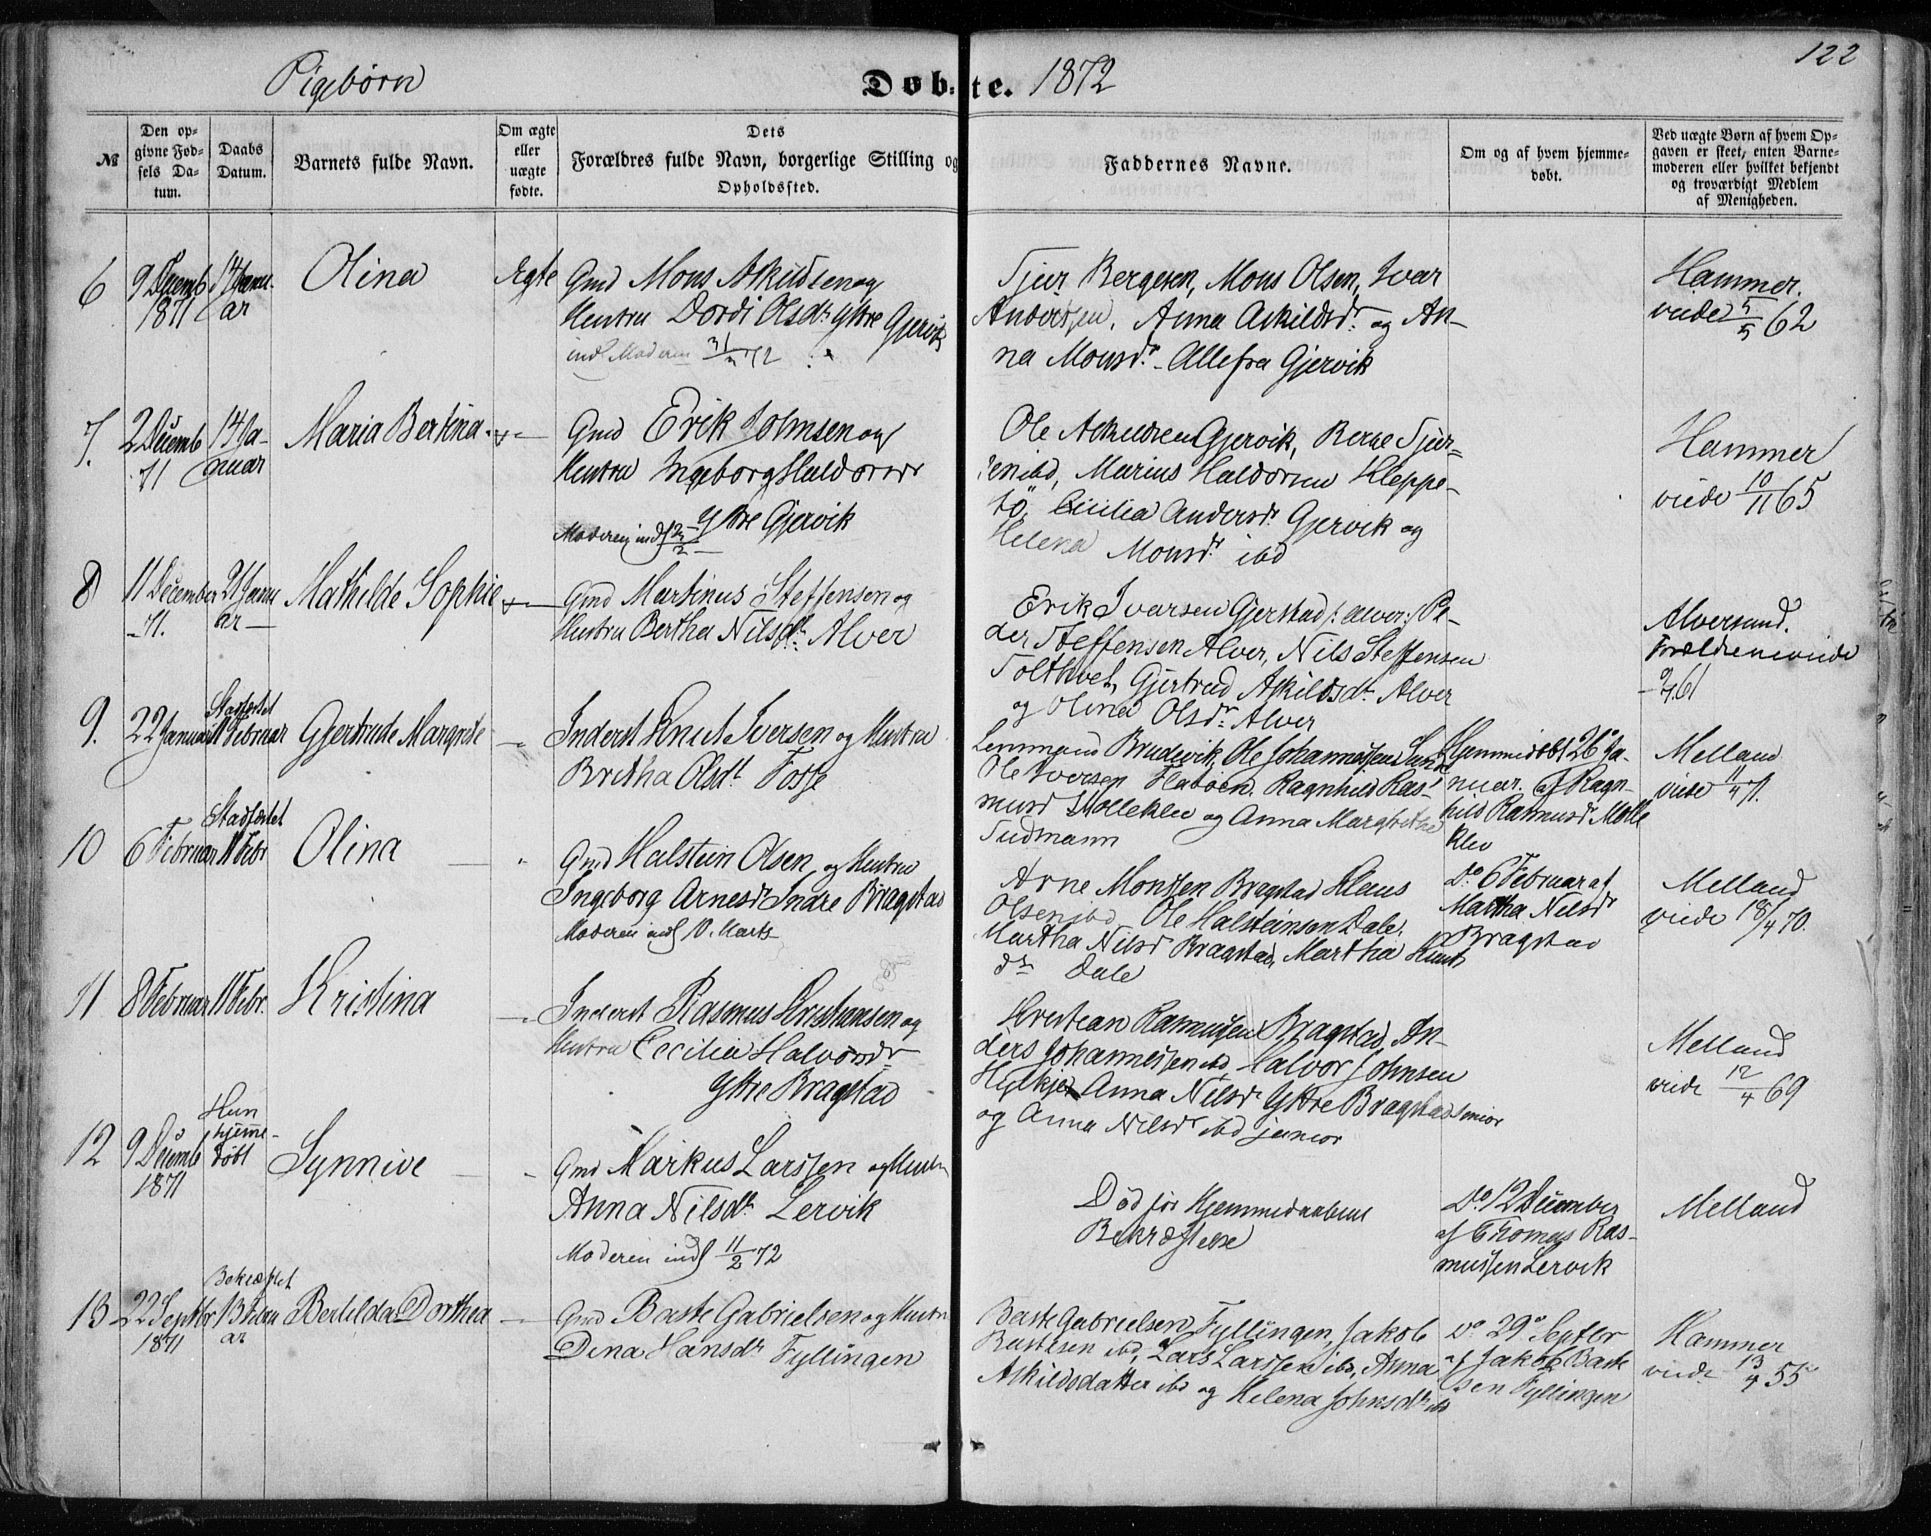 122
Pigebørn Døbte. 1872
№
Den op-
givne Fød-
sels Da-
tum.
Daabs
Datum.
Barnets fulde Navn.
Om ægte
eller
uægte
fødte.
Dets
Forældres fulde Navn, borgerlige Stilling og
Opholdssted.
Faddernes Navne.
Om og af hvem hjemme-
døbt.
Ved uægte Børn af hvem Op-
gaven er skeet, enten Barne-
moderen eller hvilket bekjendt
og troværdigt Medlem
af Menigheden.
6
9 Decemb
1871
14 Janu-
ar
Olina
Ægte
Gmd Mons Askildsen og
Hustru Dordi Olsdr Ytre Gjervik
indl Moderen
Tjer Bergesen, Mons Olsen, Ivar
Andersen, Anna Askildsdr. og An-
na Monsdr. Alle fra Gjervik
Hammer.
viede 5/5 62
7.
2 Decemb
71
14 Ja-
nuar
Maria Bertina
Gmd Erik Johnsen og
Hustru Ingeborg Haldorsdr
Ytre Gjervik
Moderen indl
Ole Askildsen Gjervik, Berge Tjer-
sen ibd, Marius Haldorsen Kleppe-
tö, Cicilia Andersdr Gjervik og
Helena Monsdr. ibd
Hammer
viede 10/11 65
8
11 December
-71.
21 Janu
ar
Mathilde Sophie
Gmd Martinus Steffensen og
Hustru Bertha Nilsdr. Alver
Erik Ivarsen Gjerstad /: Alver :/ Pe-
der Steffensen Alver, Nils Steffensen
Tolthvet, Gjertrud Askildsdr Alver
og Olina Olsdr Alver
Alversund.
Forældrene viede
61
9.
22 Januar
Stadfæstet
11 Februar
Gjertrude Margrete
Inderst Knut Iversen og Hustru
Britha Olsdr. Fosse
Lenmand Brudevik, Ole Johannessen
Ole Iversen Flatöen, Ragnhild Ras-
musd Molleklev og Anna Margrethe
Tudmann
Hjemmedøbt 26 Ja-
nuar af Ragn-
hild Rasmusdr Molle
klev
Melland
viede 11/4 71.
10
6 Februar
Stadfæstet
11 Febr
Olina
Gmd Halstein Olsen og Hustru
Ingeborg Arnesdr Indre Bragstad
Moderen indl 10. Marts
Arne Monsen Bragstad Klaus
Olsen ibd Ole Halsteinsen Dale,
Martha Nilsd Bragstad, Martha Knuts
dr Dale
do 6 Februar af
Martha Nilsdr
Bragstad
Melland
viede 18/4 70.
11
8 Februar
11 Febr.
Kristina
Inderst Rasmus Kristiansen og
Hustru Cecilia Halvorsdr
Ytre Bragstad
Kristian Rasmussen Bragstad, An-
ders Johannessen ibd, Halvor Johnsen
Hylkje Anna Nilsdr Ytre Bragstad senior
og Anna Nilsdr ibd junior
Melland
viede 12/4 69
12
9 Decemb
1871
Kun
hjemme-
døbt
Synnive
Gmd Markus Larssen og Hustru
Anna Nilsdr. Lervik
Moderen indl 11/2 72
Død før Hjemmedaabens
Bekræftelse
do 12 December
af Thomas Ras-
mussen Lervik
Melland
13
22 Septbr
1871
Bekræftet
13 Febru
ar
Bertilda Dorthea
Gmd Baste Gabrielsen og Hustru
Dina Hansdr Fyllingen
Baste Gabrielsen Fyllingen, Jakob
Bastesen ibd, Lars Larssen ibd, Anna
Askildsdatter ibd og Helena Johnsdr ibd
do 29 Septbr
af Jakob Baste
sen Fyllingen
Hammer
viede 13/4 55